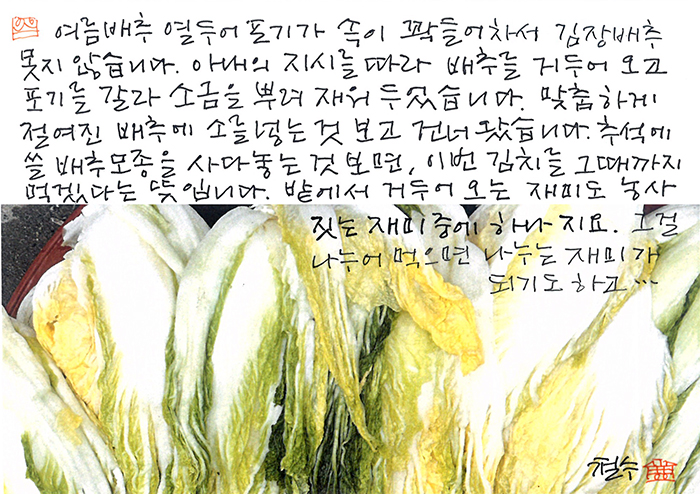 여름배추 열두어 포기가 속이 꽉들어차서 김장배추
못지 않습니다. 아내의 지시를 따라 배추를 거두어 오고
포기를 갈라 소금을 뿌려 재워 두었습니다. 맞춤하게
절여진 배추에 소를넣는 것 보고 건너 왔습니다. 추석에
쓸 배추모종을 사다놓는 것 보면, 이번 김치를 그때까지
먹겠다는 뜻입니다. 밭에서 거두어 오는 재미도 농사
짓는 재미 중에 하나 지요. 그걸
나누어 먹으면 나누는 재미가
되기도 하고…
철수